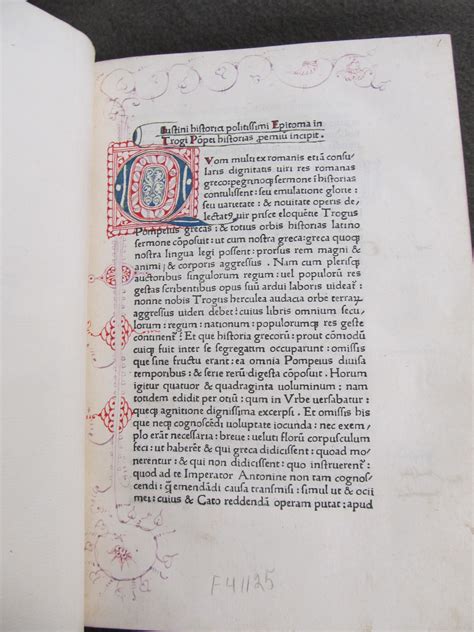 1
Iustini historici politissimi Epitoma in
Trogi Pōpei historias ꝓemiū incipit.
QVom multi ex romanis etiā consu⸗
laris dignitatis uiri res romanas
greco peregrinoq; sermone ī historias
contulissent: seu emulatione glorie:
seu uarietate: & nouitate operis de⸗
lectatꝰ uir prisce eloquētie Trogus
Pompeius grecas: & totius orbis historias latino
sermone cōposuit: ut cum nostra greca: greca quoq;
nostra lingua legi possent: prorsus rem magni &
animi: & corporis aggressus. Nam cum plerisq;
auctoribus singulorum regum: uel populorū res
gestas scribentibus opus suū ardui laboris uideat᷑:
nonne nobis Trogus herculea audacia orbe terraꝝ
aggressus uideri debet: cuius libris omnium secu⸗
lorum: regum: nationum: populorumq; res geste
continent᷑: Et que historia grecorū: prout cōmodū
cuiq; fuit inter se segregatim occuparunt: omissis
que sine fructu erant: ea omnia Pompeius diuisa
temporibus: & serie rerū digesta cōposuit. Horum
igitur quatuor & quadraginta uoluminum: nam
totidem edidit per otiū: qum in Vrbe uersabatur:
queq; agnitione dignissima excerpsi. Et omissis his
que neq; cognoscēdi uoluptate iocunda: nec exem⸗
plo erāt necessaria: breue: ueluti florū corpusculum
feci: ut haberēt & qui greca didicissent: quo admo⸗
nerentur: & qui non didicissent: quo instruerent᷑:
quod ad te Imperator Antonine non tam cognos⸗
cendi: q̄ emendādi causa transmisi: simul ut & ocii
mei: cuius & Cato reddendā operam putat: apud
F41125